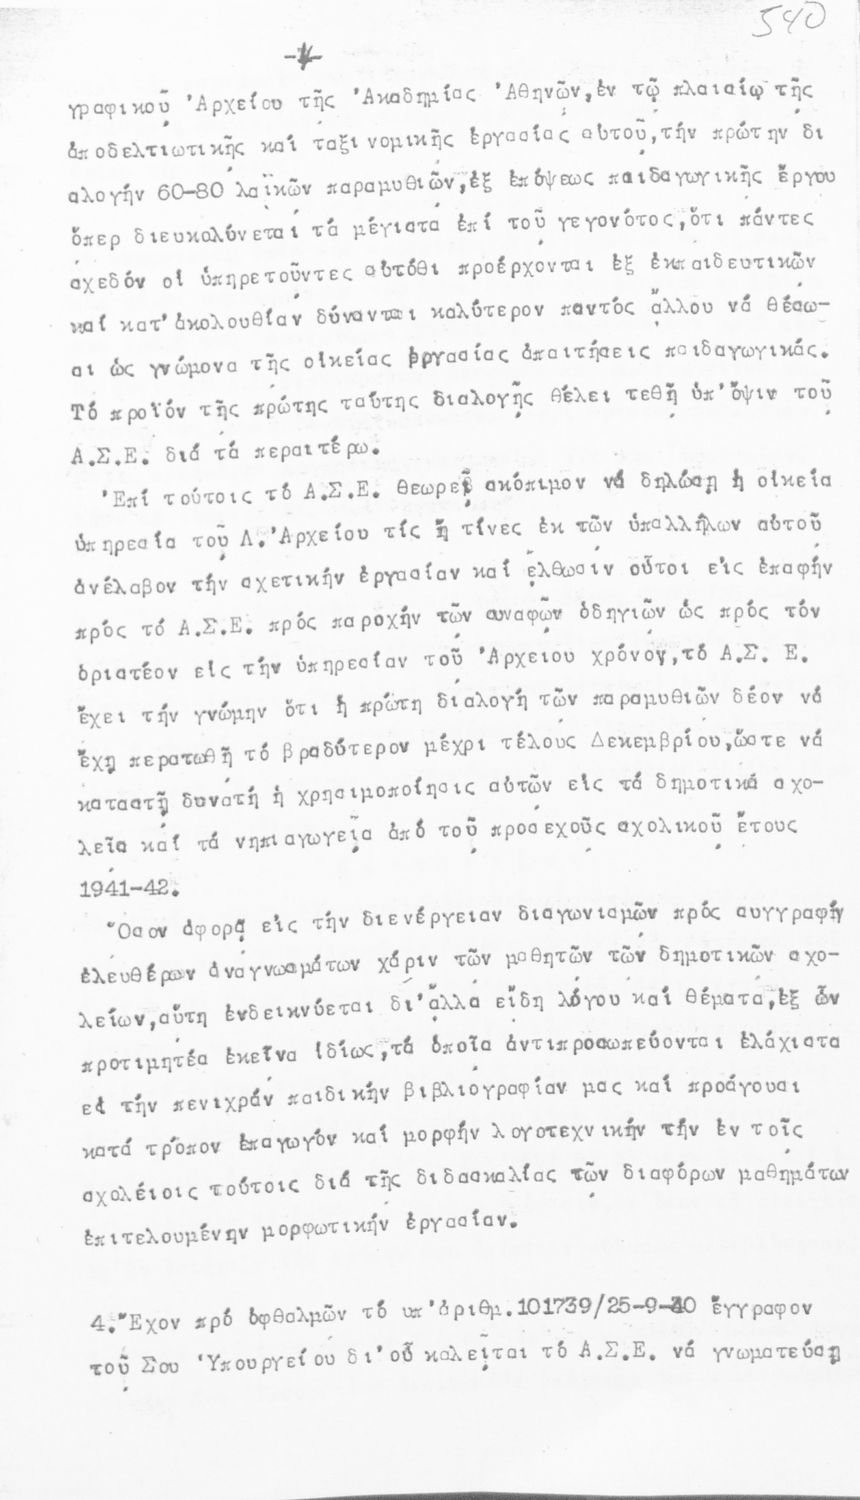 540
-4-
γραφικοῦ Ἀρχείου τῆς Ἀκαδημίας Ἀθηνῶν, ἐν τῷ πλαισίῳ τῆς
ἀποδελτιωτικῆς καί ταξινομικῆς ἐργασίας αὐτοῦ, τήν πρώτην δι
αλογήν 60-80 λαϊκῶν παραμυθιῶν, ἐξ ἐπόψεως παιδαγωγικῆς ἔργου
ὅπερ διευκολύνεται τά μέγιστα ἐπί τοῦ γεγονότος, ὅτι πάντες
σχεδόν οἱ ὑπηρετοῦντες αὐτόθι προέρχονται ἐξ ἐκπαιδευτικῶν
καί κατ' ἀκολουθίαν δύνανται καλύτερον παντός ἄλλου νά θέσω-
σι ὡς γνώμονα τῆς οἰκείας ἐργασίας ἀπαιτήσεις παιδαγωγικάς.
Τό προϊόν τῆς πρώτης ταύτης διαλογῆς θέλει τεθῆ ὑπ' ὄψιν τοῦ
Α.Σ.Ε. διά τά περαιτέρω.
Ἐπί τούτοις τό Α.Σ.Ε. θεωρεῖ σκόπιμον νά δηλώσῃ ἡ οἰκεία
ὑπηρεσία τοῦ Λ. Ἀρχείου τίς ἤ τίνες ἐκ τῶν ὑπαλλήλων αὐτοῦ
ἀνέλαβον τήν σχετικήν ἐργασίαν καί ἔλθωσιν οὗτοι εἰς ἐπαφήν
πρός τό Α.Σ.Ε. πρός παροχήν τῶν συναφῶν ὁδηγιῶν ὡς πρός τόν
ὁριστέον εἰς τήν ὑπηρεσίαν τοῦ Ἀρχειου χρόνον, τό Α.Σ. Ε.
ἔχει τήν γνώμην ὅτι ἡ πρώτη διαλογή τῶν παραμυθιῶν δέον νά
ἔχῃ περατωθῆ τό βραδύτερον μέχρι τέλους Δεκεμβρίου, ὥστε νά
καταστῇ δυνατή ἡ χρησιμοποίησις αὐτῶν εἰς τά δημοτικά σχο-
λεῖα καί τά νηπιαγωγεῖα ἀπό τοῦ προσεχοῦς σχολικοῦ ἔτους
1941-42.
Ὅσον ἀφορᾷ εἰς τήν διενέργειαν διαγωνισμῶν πρός συγγραφήν
ἐλευθέρων ἀναγνωσμάτων χάριν τῶν μαθητῶν τῶν δημοτικῶν σχο-
λείων, αὕτη ἐνδεικνύεται δι' ἄλλα εἴδη λόγου καί θέματα, ἐξ ὧν
προτιμητέα ἐκεῖνα ἰδίως, τά ὁποῖα ἀντιπροσωπεύονται ἐλάχιστα
εἰ τήν πενιχράν παιδικήν βιβλιογραφίαν μας καί προάγουσι
κατά τρόπον ἐπαγωγόν καί μορφήν λογοτεχνικήν τήν ἐν τοῖς
σχολείοις τούτοις διά τῆς διδασκαλίας τῶν διαφόρων μαθημάτων
ἐπιτελουμένην μορφωτικήν ἐργασίαν.
4. Ἔχον πρό ὀφθαλμῶν τό υπ' ἀριθμ. 101739/25-9-40 ἔγγραφον
τοῦ Σου Ὑπουργείου δι' οὗ καλεῖται τό Α.Σ.Ε. νά γνωματεύσῃ